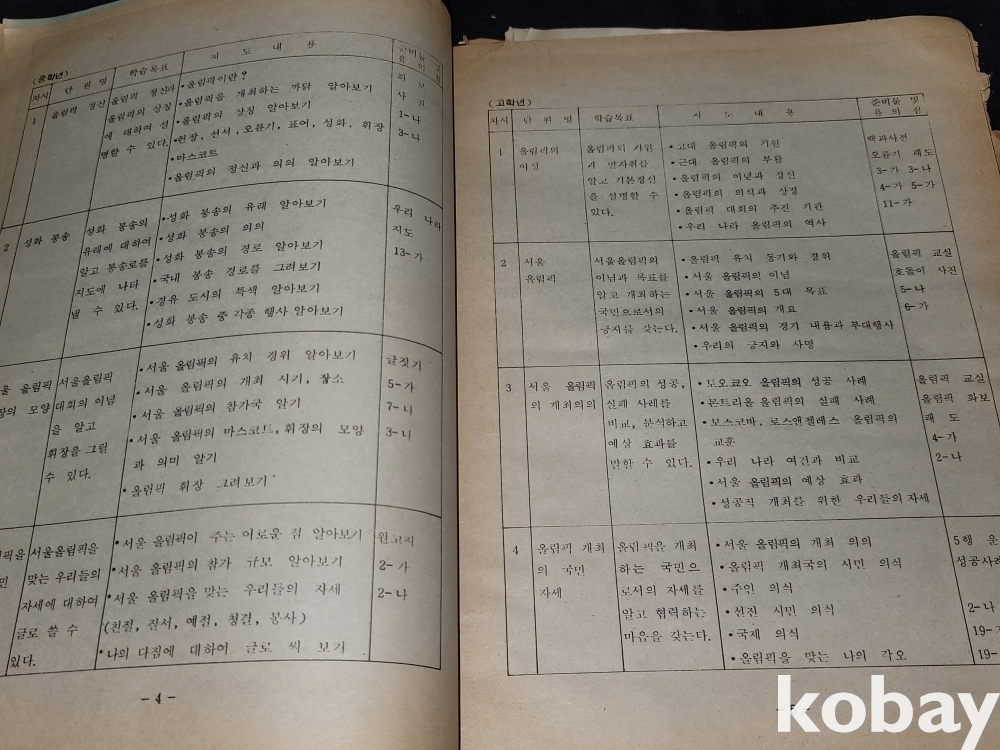 (중학년)
차시 단 원 명 학습목표 지 도 내 용 준비물
1 올림픽 정신 올림픽 정신과
올림픽의 상징
에 대하여 설
명할 수 있다.
•올림픽이란?
•올림픽을 개최하는 까닭 알아보기
•올림픽의 상징 알아보기
•헌장, 선서, 오륜기, 표어, 성화, 휘장
•마스코트
•올림픽의 정신과 의의 알아보기
화 보
사 진
1-나
3-나
2 성화 봉송 성화 봉송의
유래에 대하여
알고 봉송로를
지도에 나타
낼 수 있다.
•성화 봉송의 유래 알아보기
•성화 봉송의 의의
•성화 봉송의 경로 알아보기
•국내 봉송 경로를 그려보기
•경유 도시의 특색 알아보기
•성화 봉송 중 각종 행사 알아보기
우리 나라
지도
13-가
올림픽 서울올림픽
모양 대회의 이념
을 알고
휘장을 그릴
수 있다.
•서울 올림픽의 유치 경위 알아보기
•서울 올림픽의 개최 시기, 장소
•서울 올림픽의 참가국 알기
•서울 올림픽의 마스코트, 휘장의 모양
과 의미 알기
•올림픽 휘장 그려보기
글짓기
5-가
7-나
3-나
서울올림픽을
맞는 우리들의
자세에 대하여
글로 쓸 수
있다.
•서울 올림픽이 주는 이로운 점 알아보기
•서울 올림픽의 참가 규모 알아보기
•서울 올림픽을 맞는 우리들의 자세
(친절, 질서, 예절, 청결, 봉사)
•나의 다짐에 대하여 글로 써 보기
원고지
2-가
2-나
- 4 -
(고학년)
차시 단 원 명 학습목표 지 도 내 용 준비물 및
유 의 점
1 올림픽의
이상
올림픽의 기원
과 발자취를
알고 기본정신
을 설명할 수
있다.
•고대 올림픽의 기원
•근대 올림픽의 부활
•올림픽의 이념과 정신
•올림픽의 의식과 상징
•올림픽 대회의 추진 기관
•우리 나라 올림픽의 역사
백과사전
오륜기 괘도
3-가 3-나
4-가 5-가
11-가
2 서울
올림픽
서울올림픽의
이념과 목표를
알고 개최하는
국민으로서의
긍지를 갖는다.
•올림픽 유치 동기와 경위
•서울 올림픽의 이념
•서울 올림픽의 5대 목표
•서울 올림픽의 개요
•서울 올림픽의 경기 내용과 부대행사
•우리의 긍지와 사명
올림픽 교실
호돌이 사진
5-나
6-가
3 서울 올림픽
의 개최의의
올림픽의 성공,
실패 사례를
비교, 분석하고
예상 효과를
말할 수 있다.
•도오쿄오 올림픽의 성공 사례
•몬트리올 올림픽의 실패 사례
•모스코바, 로스앤젤레스 올림픽의
교훈
•우리 나라 여건과 비교
•서울 올림픽의 예상 효과
•성공적 개최를 위한 우리들의 자세
올림픽 교실
올림픽 화보
괘 도
4-가
2-나
4 올림픽 개최
의 국민
자세
올림픽을 개최
하는 국민으
로서의 자세를
알고 협력하는
마음을 갖는다.
•서울 올림픽의 개최 의의
•올림픽 개최국의 시민 의식
•주인 의식
•선진 시민 의식
•국제 의식
•올림픽을 맞는 나의 각오
5행 운
성공사례
2-나
19-
19-
kobay